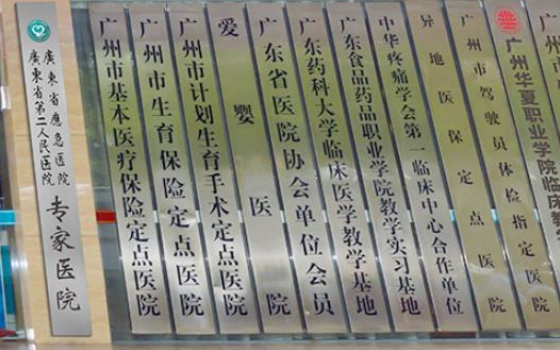 廣東省應急医院
廣東省第二人民医院
专家医院
广州市基本医疗保险定点医院
广州市生育保险定点医院
广州市计划生育手术定点医院
爱婴医院
广东省医院协会单位会员
广东药科大学临床医学教学基地
广东食品药品职业学院教学实习基地
中华疼痛学会第一临床中心合作单位
异地医保定点医院
广州市驾驶员体检指定医院
广州华夏职业学院临床